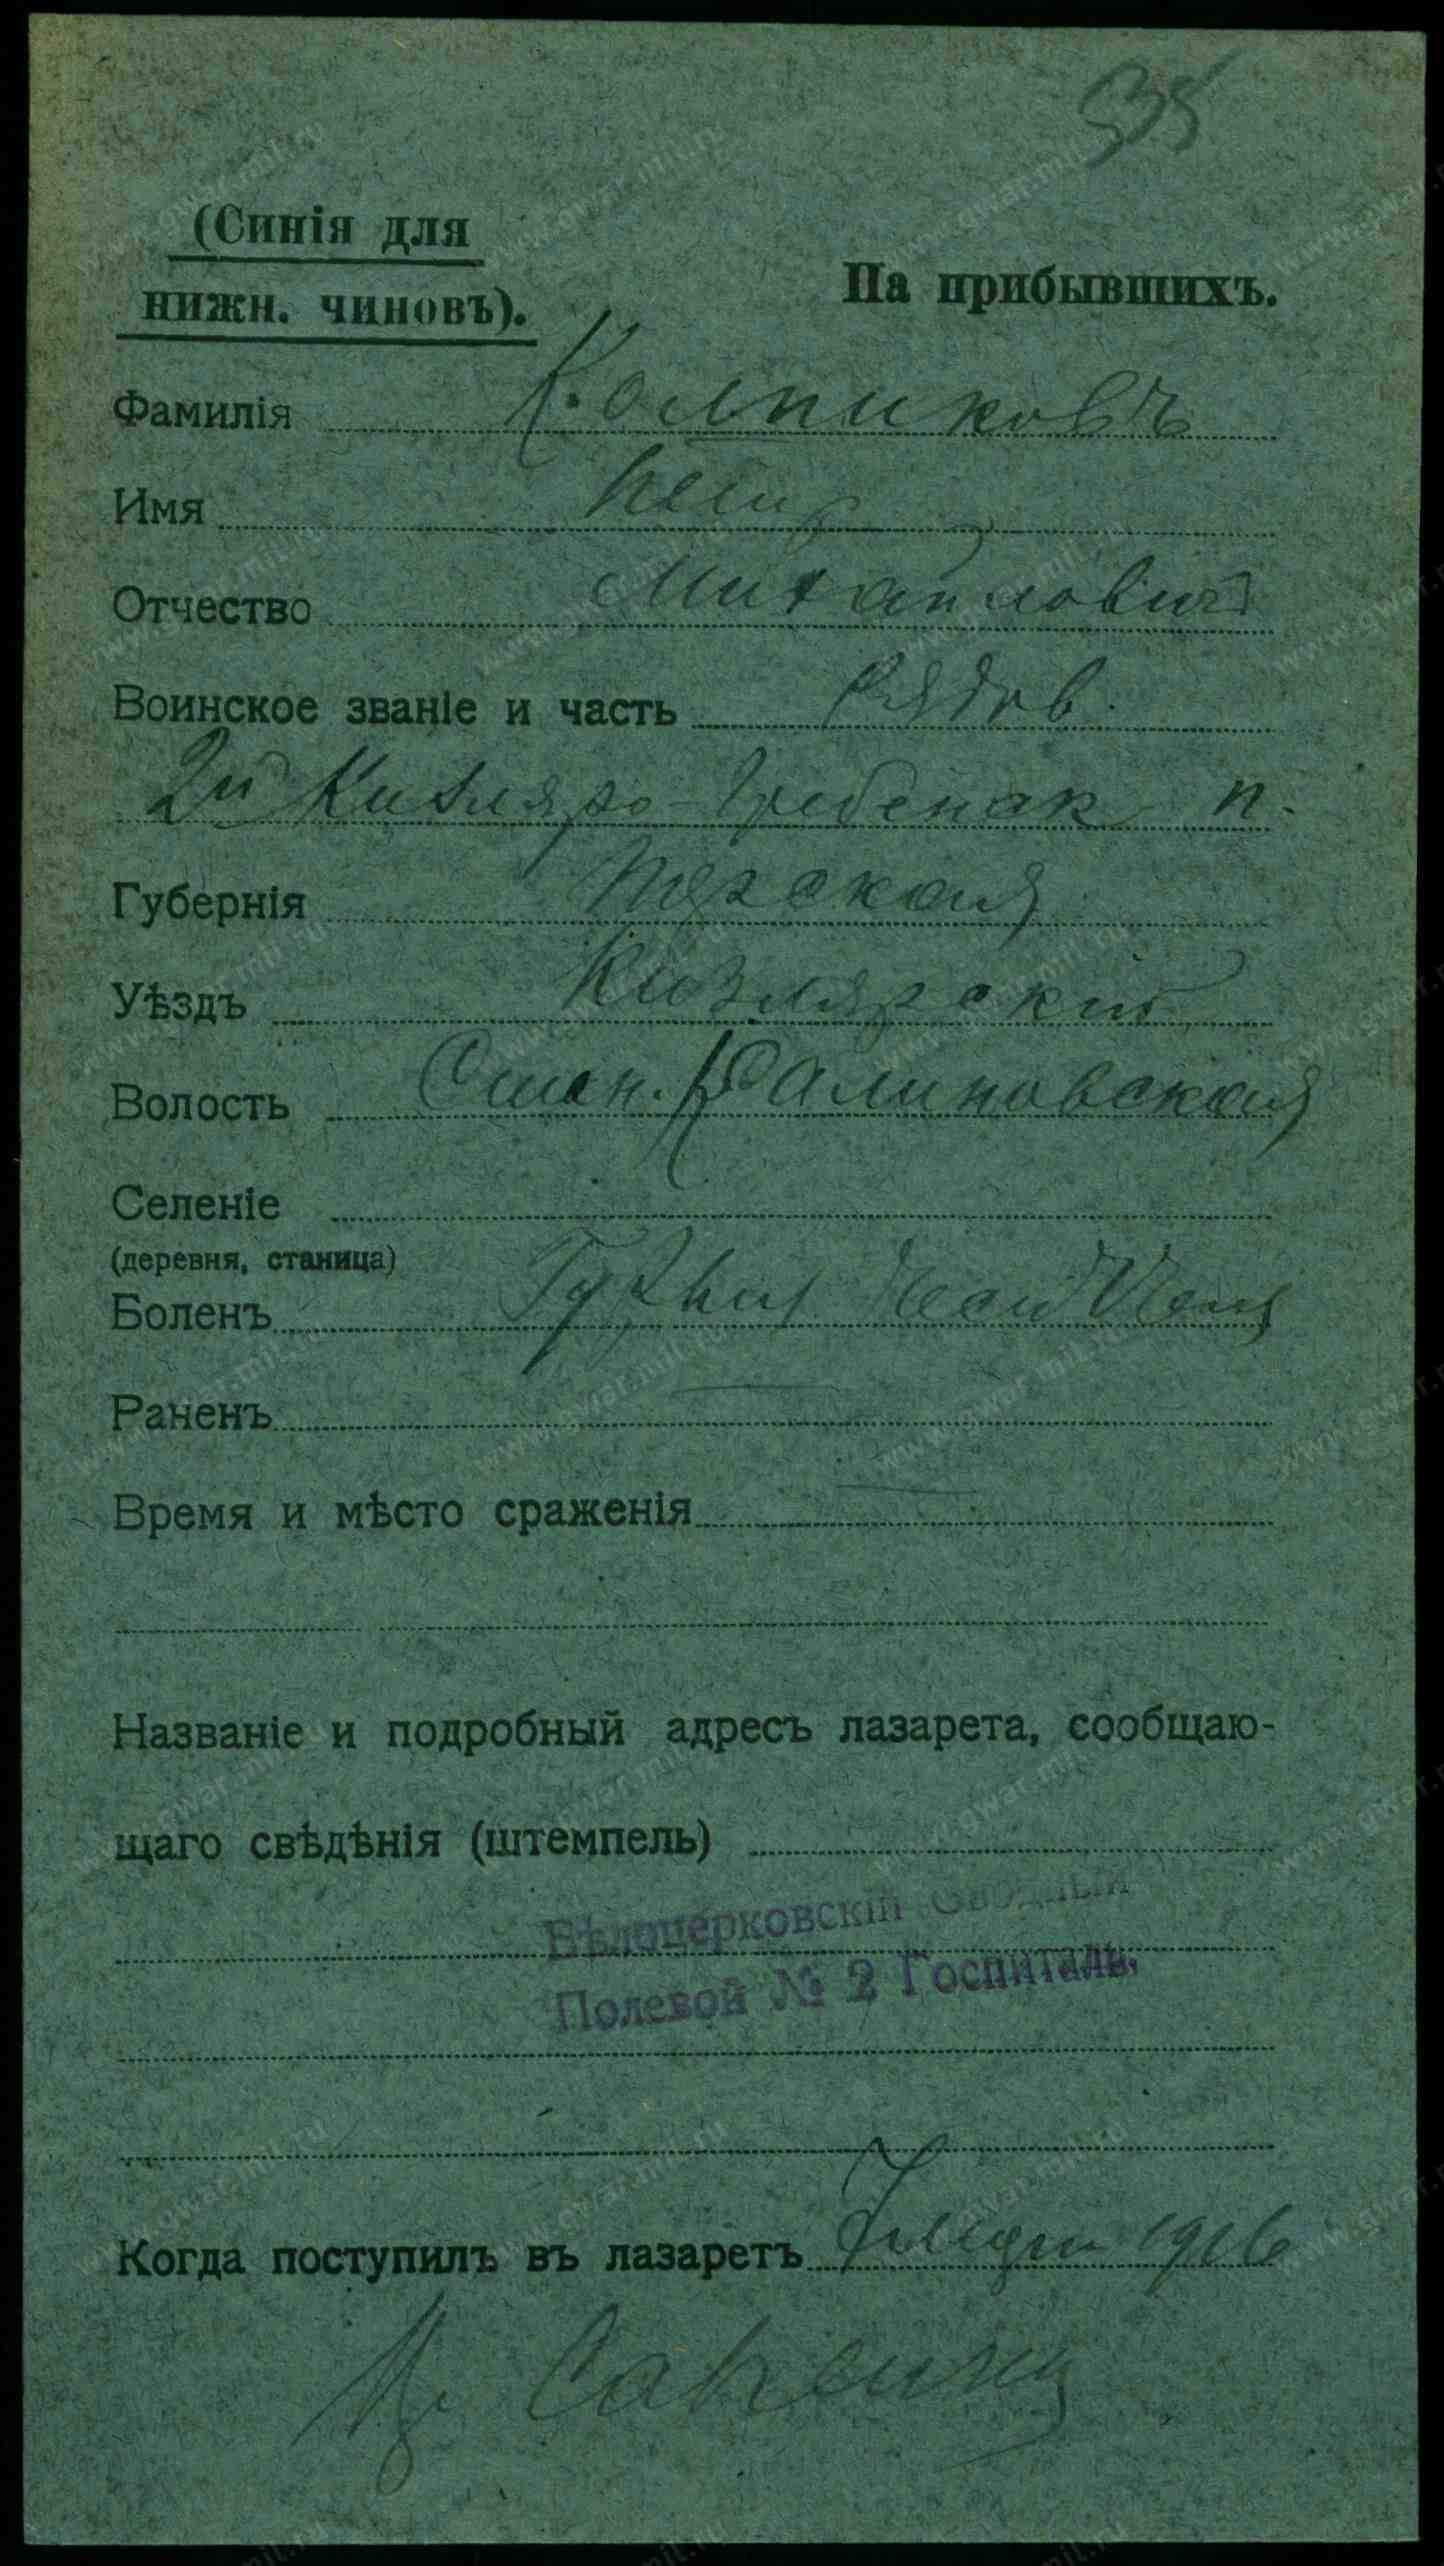 35
(Синія для
нижн. чиновъ).
На прибывшихъ.
Фамилія Колпиковъ
Имя Петр
Отчество Михайловичъ
Воинское званіе и часть Рядов.
2й Кизляро-Гребенск п.
Губернія Терская
Уѣздъ Кизлярскій
Волость Стан. Калиновская
Селеніе
(деревня, станица)
Боленъ
Раненъ
Время и мѣсто сраженія
Названіе и подробный адресъ лазарета, сообщаю-
щаго свѣдѣнія (штемпель)
Бѣлоцерковскій Сводный
Полевой № 2 Госпиталь.
Когда поступилъ въ лазаретъ 1916